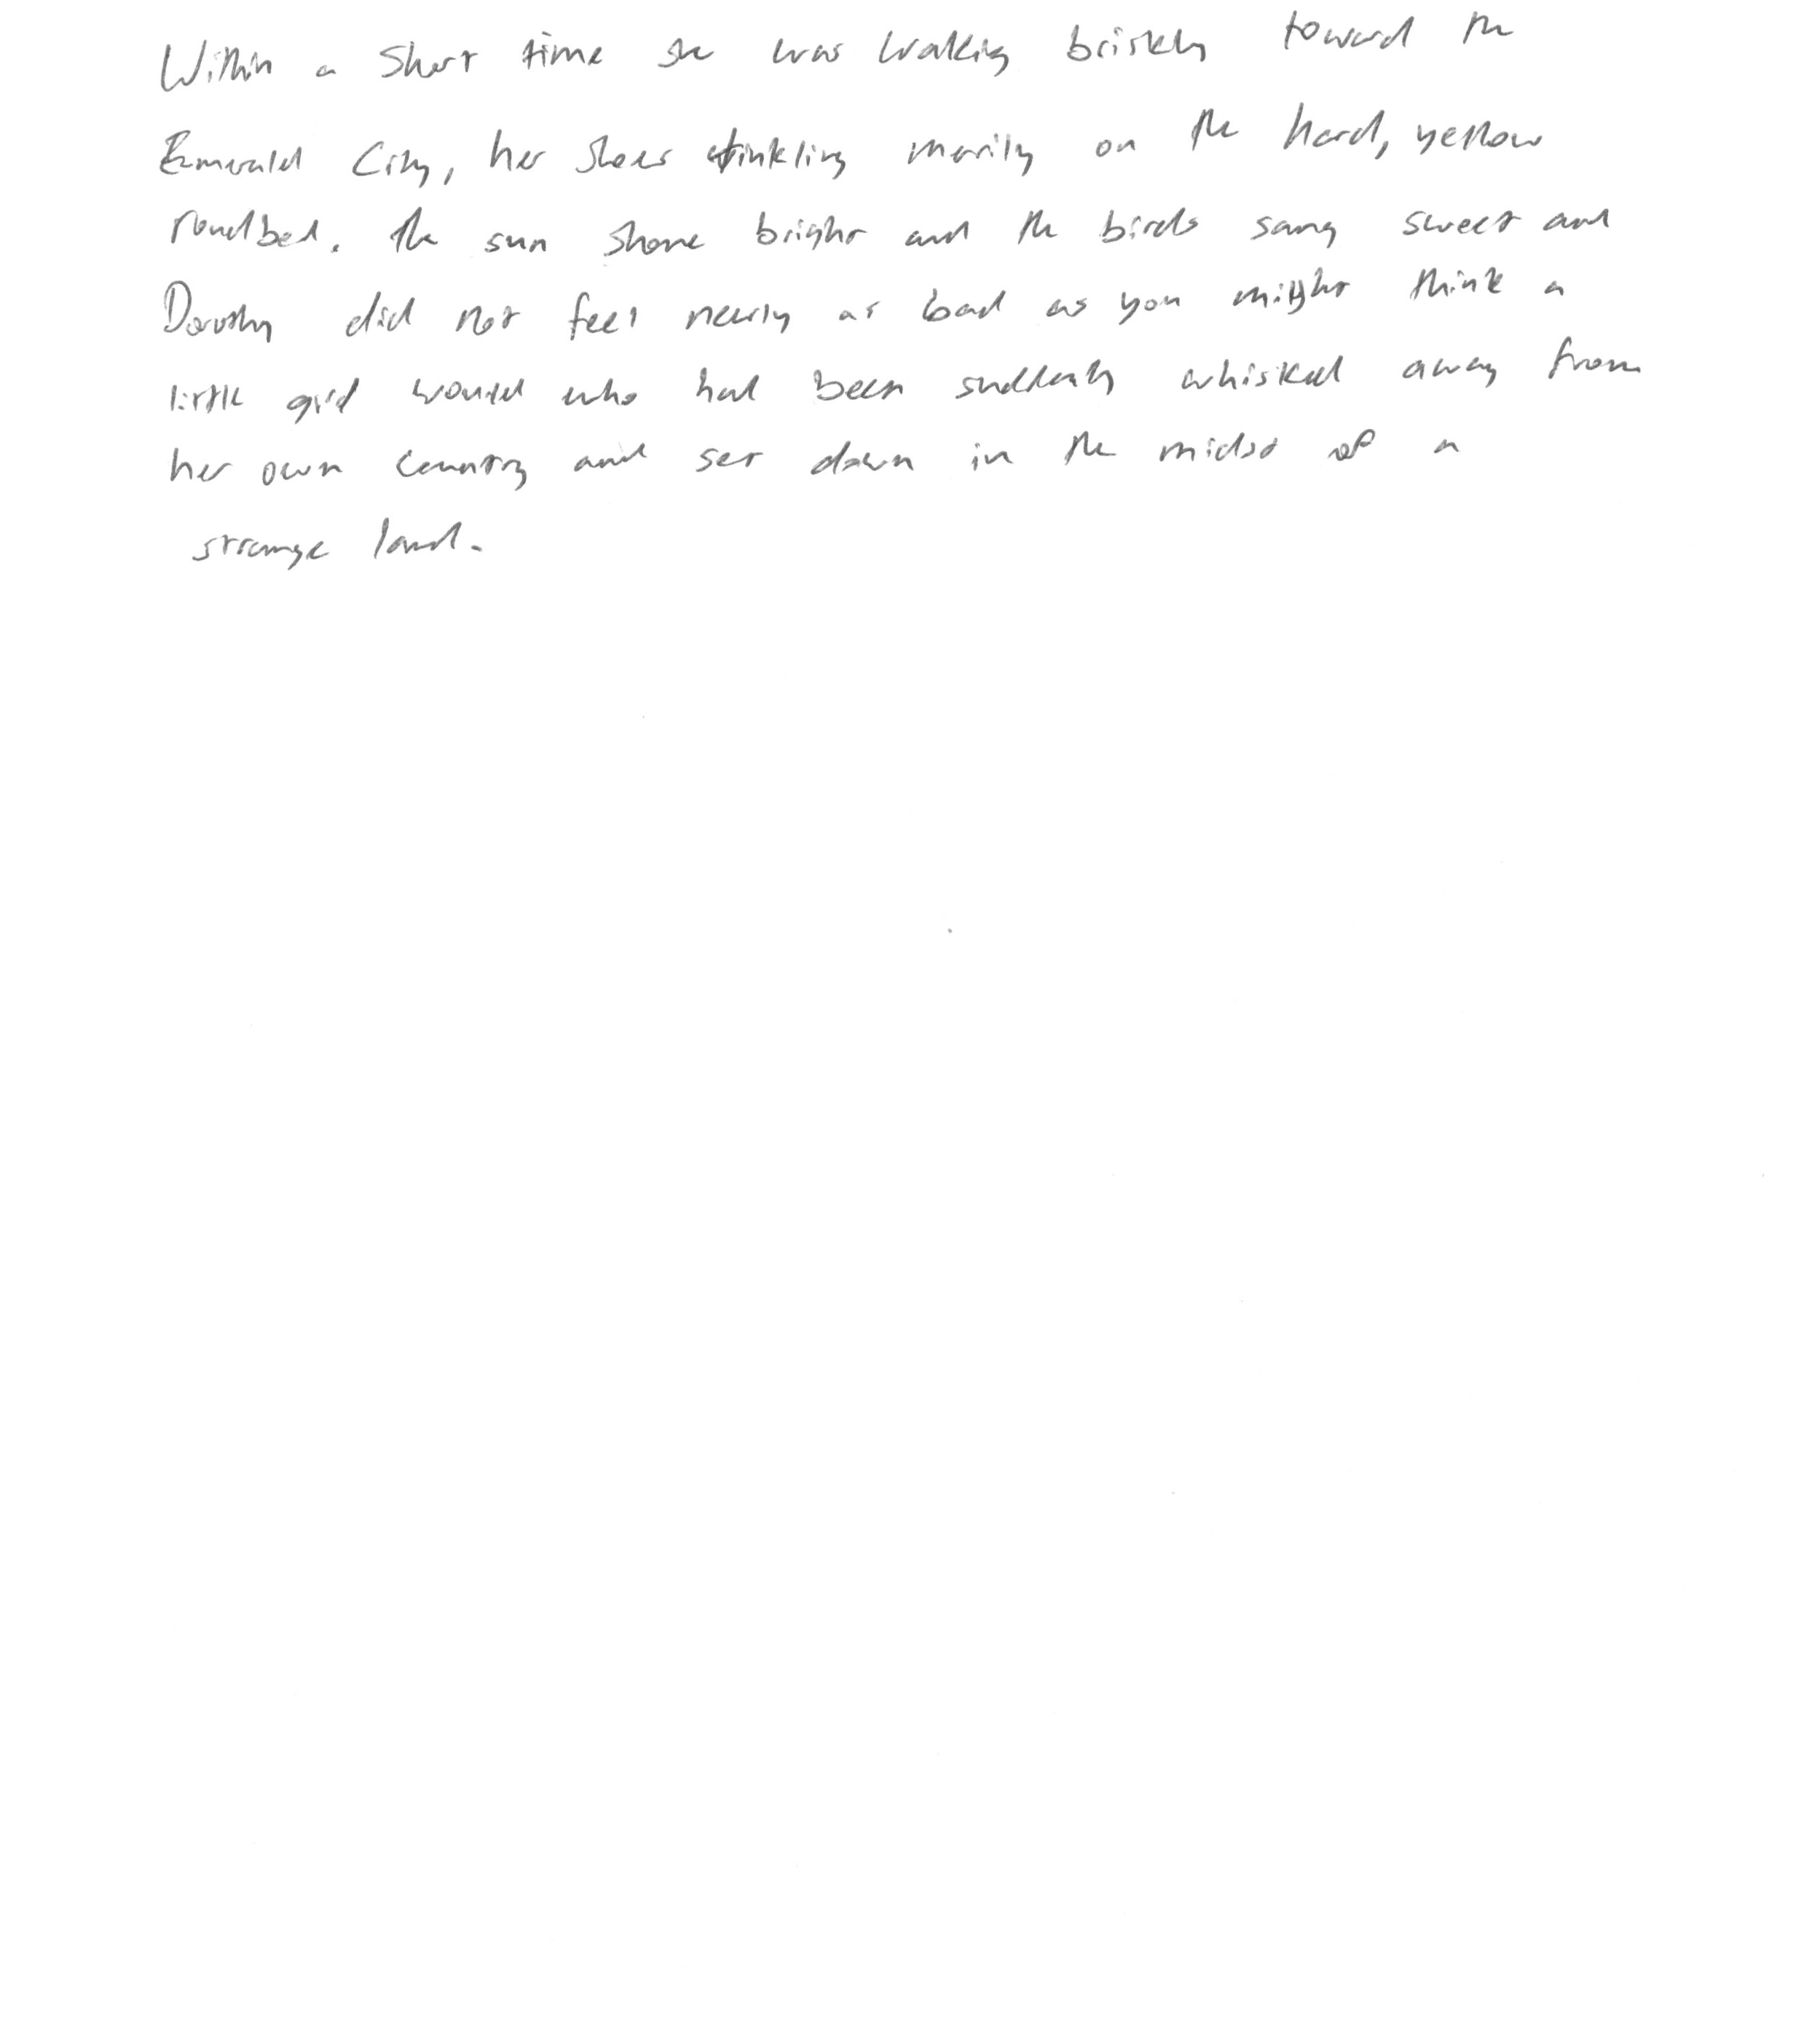 Within a short time she was walking briskly toward the
Emerald City, her shoes tinkling merrily on the hard, yellow
roadbed. The sun shone bright and the birds sang sweet and
Dorothy did not feel nearly as bad as you might think a
little girl would who had been suddenly whisked away from
her own country and set down in the midst of a
strange land.